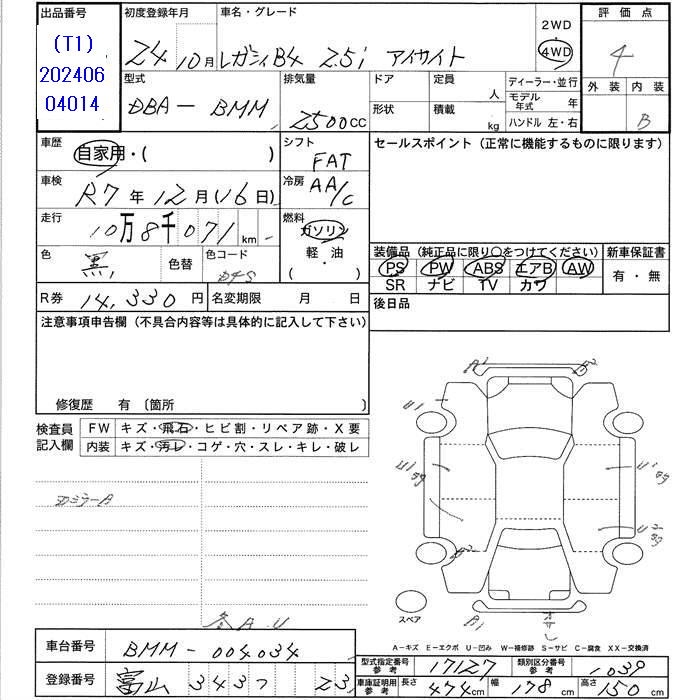 出品番号
(T1)
202406
04014
初度登録年月 24 10月
車名・グレード レガシィB4 2.5i アイサイト
2WD
4WD
評価点 4
外装 内装
B
型式 DBA-BMM
排気量 2500cc
ドア
形状
定員 人
積載 kg
ディーラー・並行
モデル年式 年
ハンドル 左・右
車歴 自家用・( )
シフト FAT
セールスポイント(正常に機能するものに限ります)
車検 R7年12月(16日)
冷房 AA/C
走行 10万8千071km
燃料 ガソリン
軽・油
・( )
色 黒
色替
色コード D4S
装備品(純正品に限り○をつけてください)
PS PW ABS エアB AW
SR ナビ TV カワ
新車保証書
有・無
R券 14,330円
名変期限 月 日
後日品
注意事項申告欄(不具合内容等は具体的に記入して下さい)
修復歴 有〔箇所 〕
検査員記入欄
FW キズ・飛石・ヒビ割・リペア跡・X要
内装 キズ・汚レ・コゲ・穴・スレ・キレ・破レ
A1
U1
スペア
A1
各A.U
A-キズ E-エクボ U-凹み W-補修跡 S-サビ C-腐食 XX-交換済
車台番号 BMM-004034
型式指定番号参考 17127
類別区分番号参考 1039
登録番号 富山 343
車庫証明用参考 長さ 474cm 幅 178cm 高さ 150cm